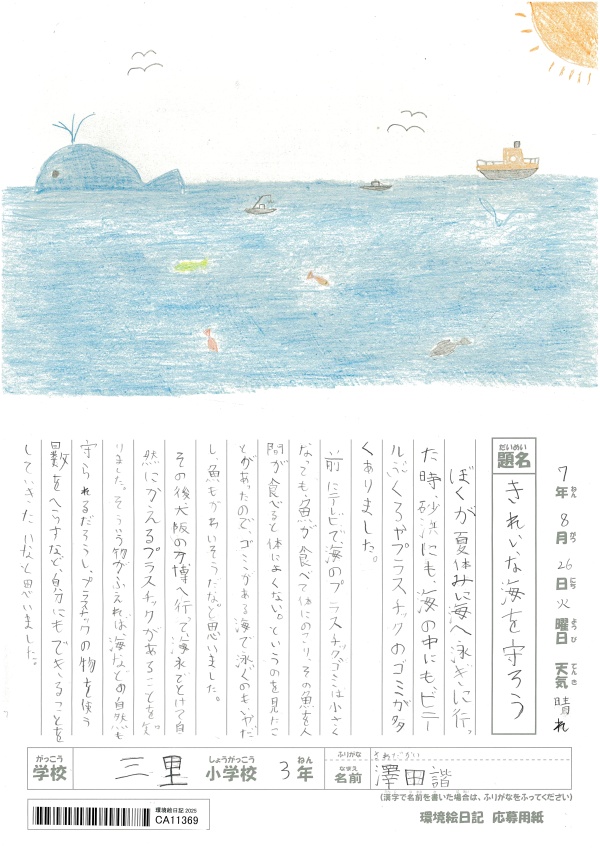 7年 8月 26日 火曜日 天気 晴れ
ねん がつ にち よう び てんき
だいめい
題名 きれいな海を守ろう
ぼくが夏休みに海へ泳ぎに行っ
た時、砂浜にも、海の中にもビニー
ルぶくろやプラスチックのゴミが多
くありました。
前にテレビで、海のプラスチックゴミは小さく
なっても、魚が食べて体にのこり、その魚を人
間が食べると体によくない。というのを見たこ
とがあったので、ゴミがある海で泳ぐのもいやだ
し、魚もかわいそうだなと思いました。
その後大阪の万博へ行って、海水でとけて自
然にかえるプラスチックがあることを知
りました。そういう物がふえれば、海などの自然も
守られるだろうし、プラスチックの物を使う
回数をへらすなど、自分にもできることを
していきたいなと思いました。
がっこう
学校 三里 小学校 3年
しょうがっこう ねん
ふりがな さわだかい
なまえ
名前 澤田諧
(漢字で名前を書いた場合は、ふりがなをふってください)
環境絵日記 応募用紙
環境絵日記 2025
CA11369